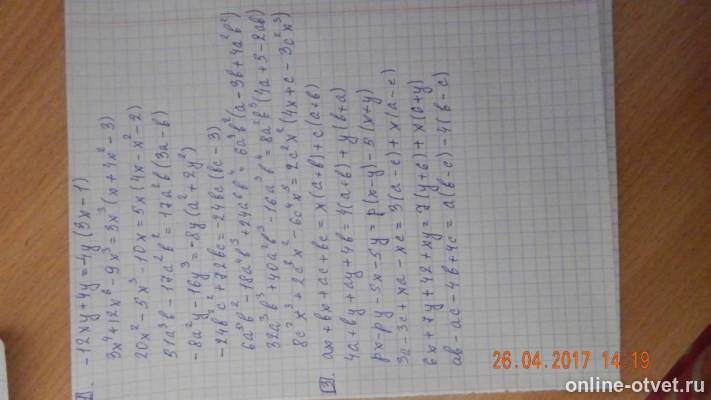 -12xy+4y=-4y(3x-1)
3x⁴+12x⁶-9x³=3x³(x+4x²-3)
20x²-5x³-10x=5x(4x-x²-2)
51a³b-17a²b²=17a²b(3a-b)
-8a²y-16y³=-8y(a²+2y²)
-24b²c²+72bc=-24bc(bc-3)
6a⁵b²-18a⁴b³+24a⁶b⁴=6a⁴b²(a-3b+4a²b²)
32a³b³+40a²b³-16a³b⁴=8a²b³(4a+5-2ab)
8c²x³+2c³x²-6c⁴x⁵=2c²x²(4x+c-3c²x³)
3. ax+bx+ac+bc=x(a+b)+c(a+b)
4a+by+ay+4b=4(a+b)+y(b+a)
px-py-5x-5y=p(x-y)-5(x+y)
3a-3c+xa-xc=3(a-c)+x(a-c)
6x+7y+42+xy=7(y+6)+x(6+y)
ab-ac-4b+4c=a(b-c)-4(b-c)
26.04.2017 14:19
online-otvet.ru